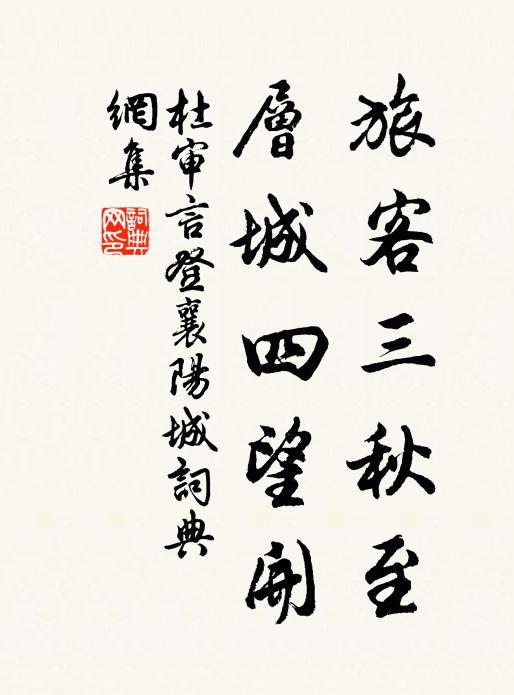 旅客三秋至
層城四望開
杜審言登襄陽城詞典
網集
詞典
网印